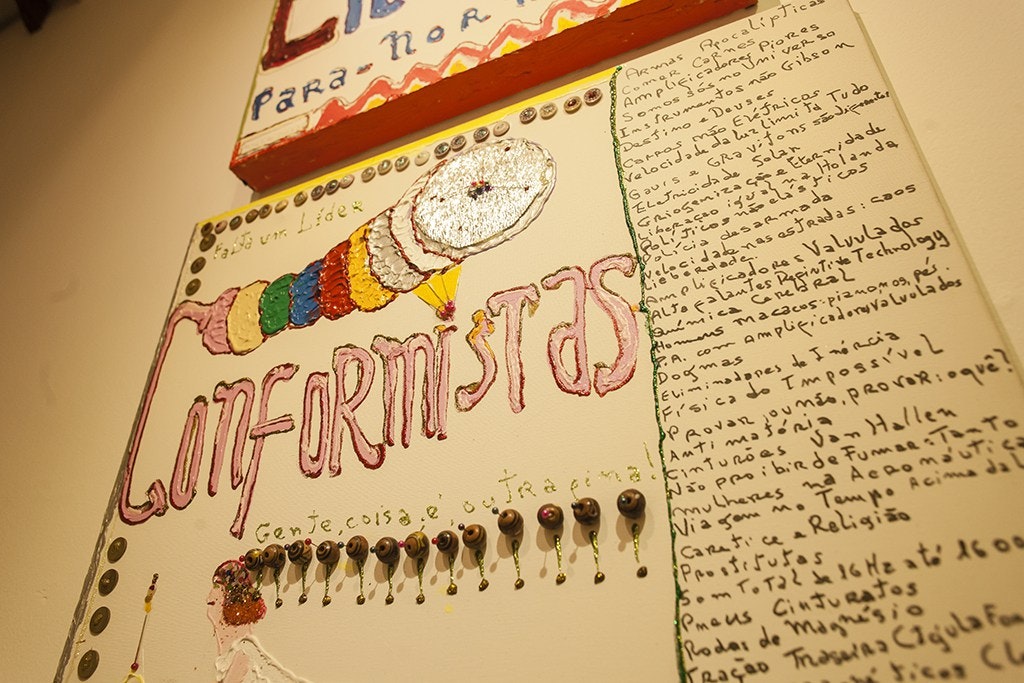 Para-nor
Falta um Líder
Conformistas
Gente, coisa, é outra, cima!
Armas Apocalípticas
Comer Carnes Piores
Amplificadores
Somos sós no Universo
Instrumentos não Gibson
Destino e Deuses
Carros não Elétricos
Velocidade da luz limita Tudo
Gavis e Gravitons são
Eletricidade Solar
Criogenização e Eternidade
Liberação igual na Holanda
Políticos não elásticos
Polícia desarmada
Velocidade nas estradas: caos
Amplificadores Valvulados
Alto Falantes Technology
Anêmica Cerebral
Homens macacos: pés
P.A. com Amplificadores Valvulados
Dogmas
Eliminadores de Inércia
Física do Impossível
Provar, ou não, provar: o quê?
Anti matória
Cinturões Van Hallen
Não proibir de Fumar: Tanto
mulheres na Aeronáutica
Viagem no Tempo Acima da
Caretice e Religião
Prostitutas
Som Total de 16Hz até 1600
Pneus Cinturatos
Rodas de Magnésio
Tração Traseira